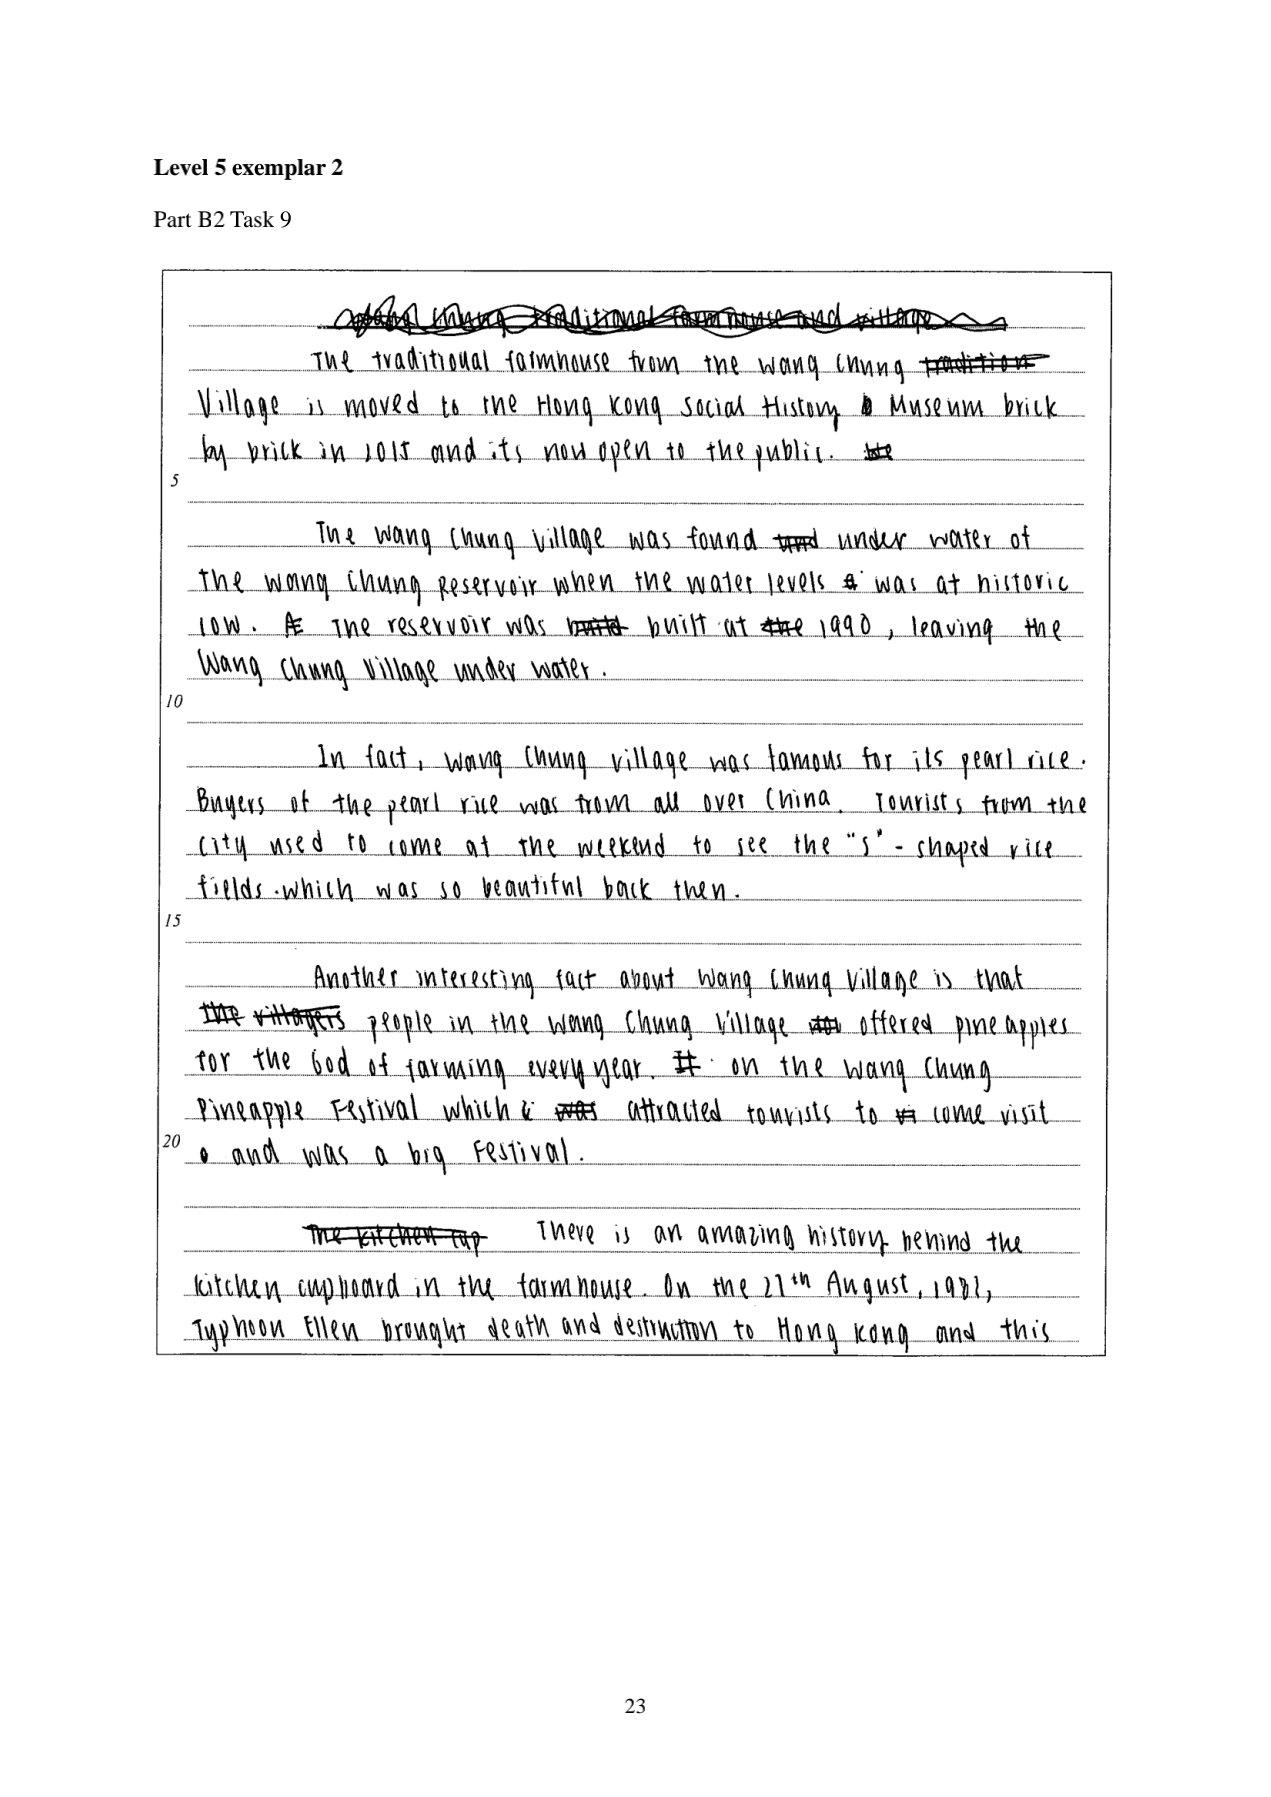 Level 5 exemplar 2
Part B2 Task 9
The traditional farmhouse from the Wang Chung
Village is moved to the Hong Kong Social History Museum brick
by brick in 2015 and its now open to the public.
5
The Wang Chung Village was found under water of
the Wang Chung Reservoir when the water levels was at historic
low. The reservoir was built at 1990, leaving the
Wang Chung Village under water.
10
In fact, Wang Chung Village was famous for its pearl rice.
Buyers of the pearl rice was from all over China. Tourists from the
city used to come at the weekend to see the "S"-shaped rice
fields which was so beautiful back then.
15
Another interesting fact about Wang Chung Village is that
people in the Wang Chung Village offered pineapples
for the God of farming every year. on the Wang Chung
Pineapple Festival which attracted tourists to come visit
20
and was a big Festival.
There is an amazing history behind the
kitchen cupboard in the farmhouse. On the 27th August, 1982,
Typhoon Ellen brought death and destruction to Hong Kong and this
23